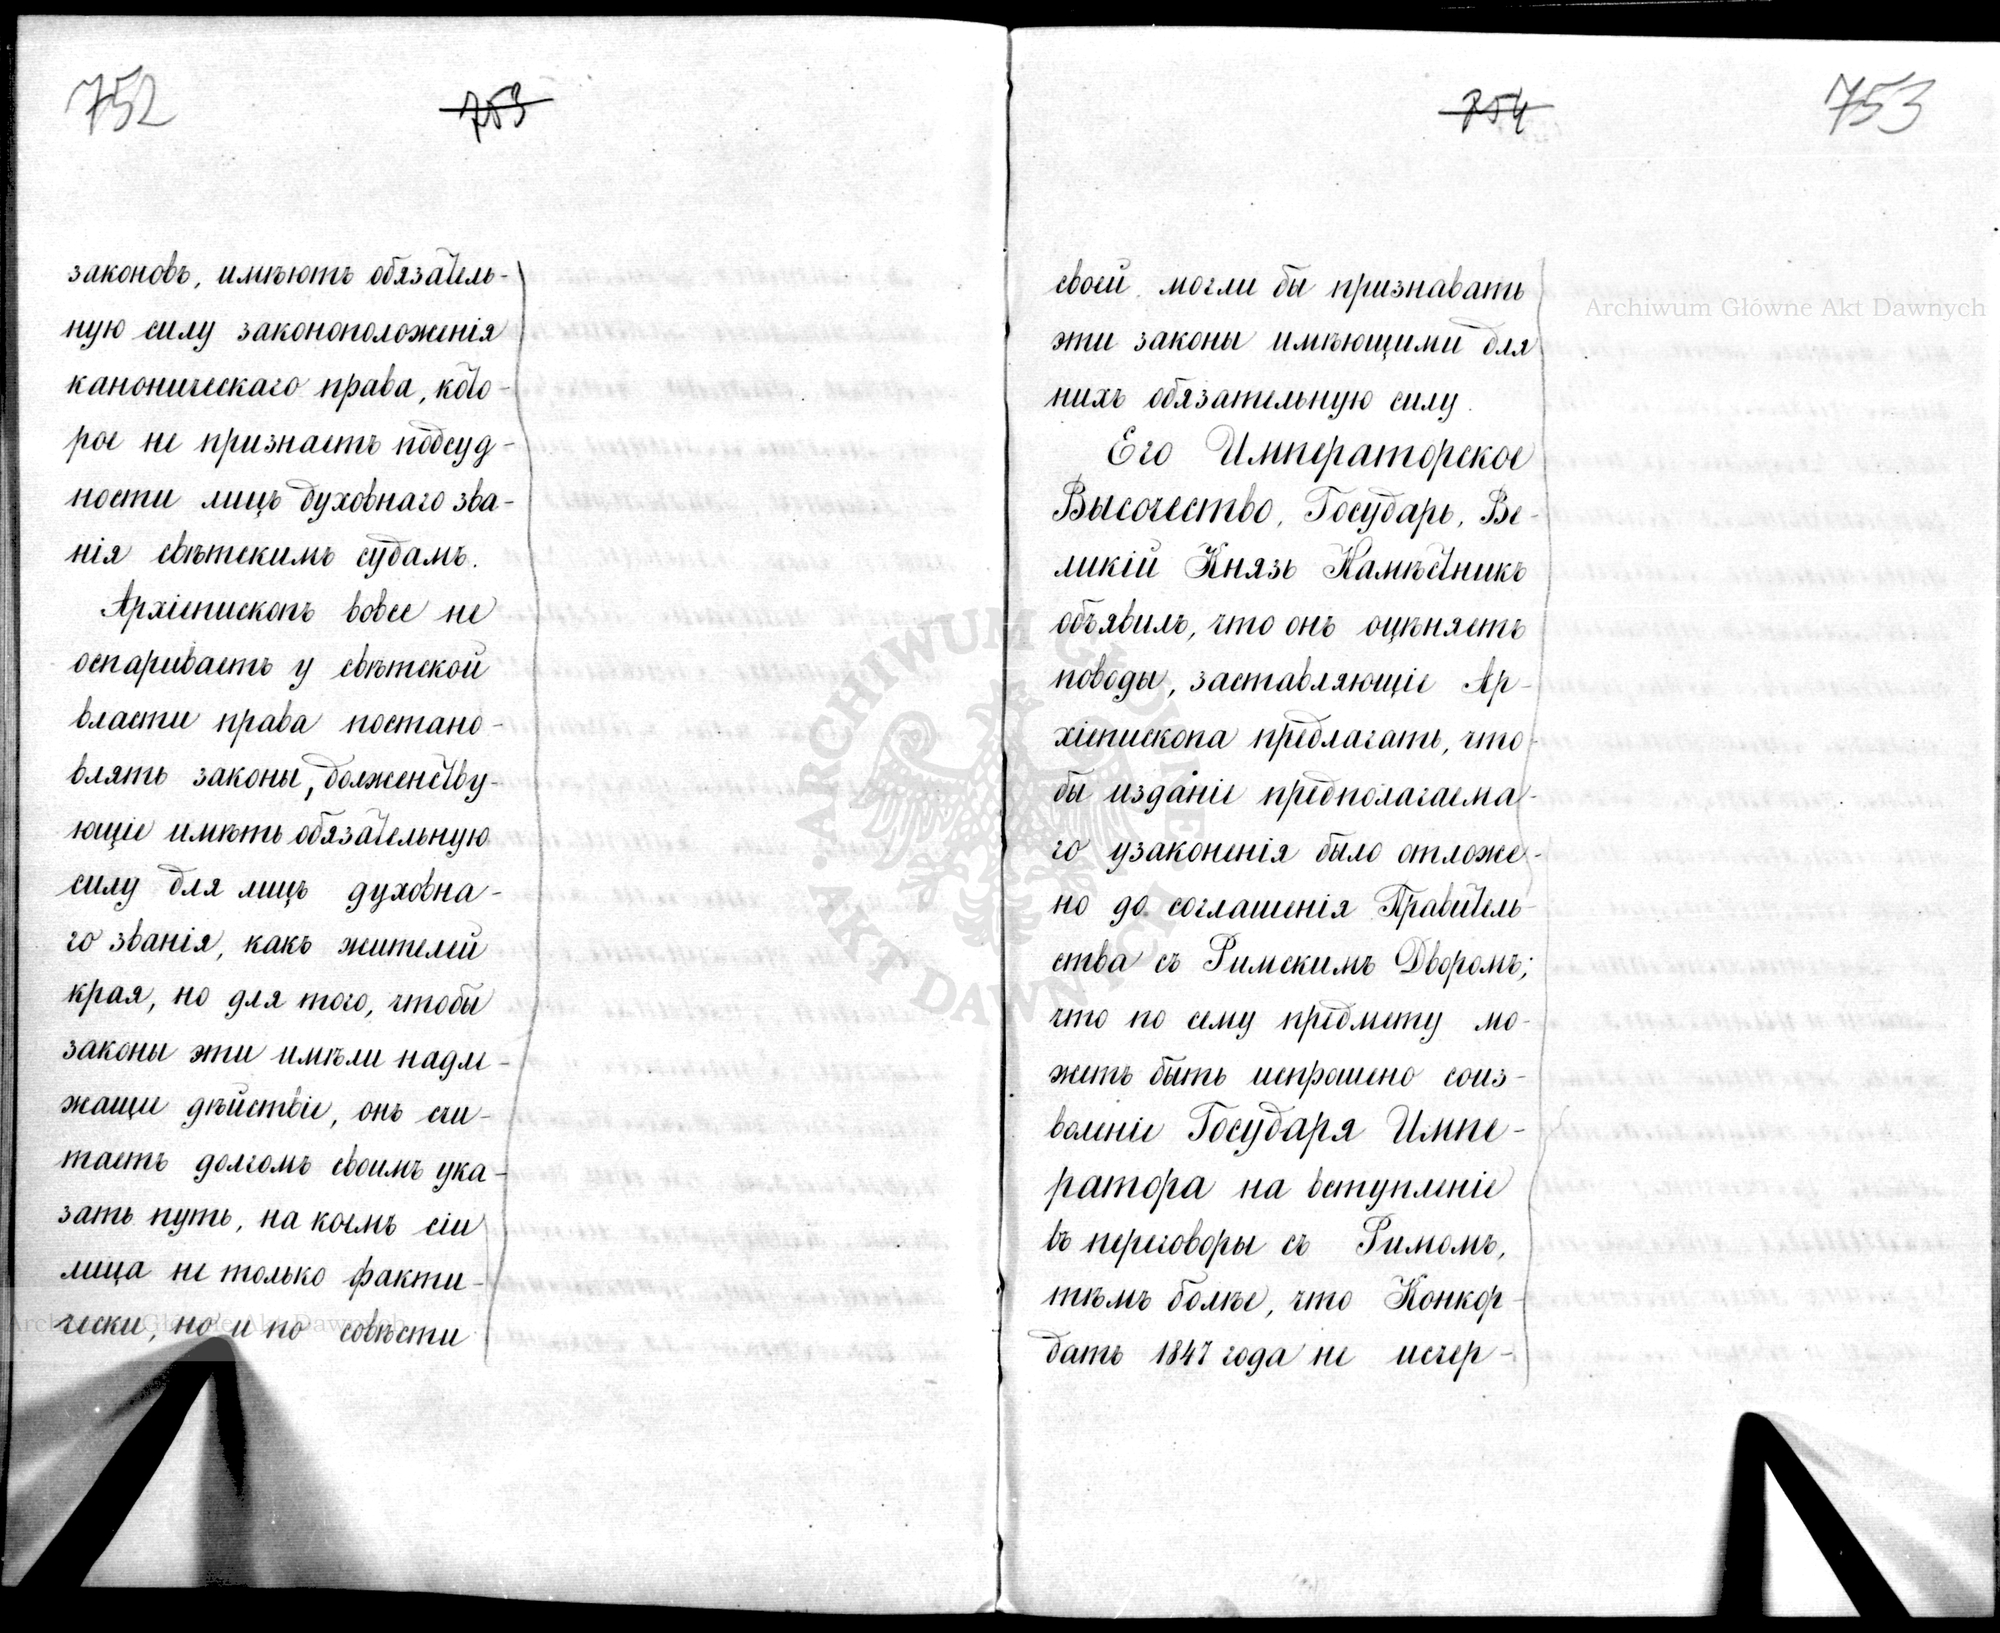 752
753
законовъ, имѣютъ обязатель-
ную силу законоположенія
каноническаго права, кото-
рое не признаетъ подсуд-
ности лицъ духовнаго зва-
нія свѣтскимъ судамъ.
Архіепископъ вовсе не
оспариваетъ у свѣтской
власти права постано-
влять законы, долженству-
ющіе имѣть обязательную
силу для лицъ духовна-
го званія, какъ жителей
края, но для того, чтобы
законы эти имѣли надле-
жащи дѣйствіе, онъ счи-
таетъ долгомъ своимъ ука-
зать путь, на коемъ сіи
лица не только факти-
чески, но и по совѣсти
754
753
своей могли бы признавать
эти законы имѣющими для
нихъ обязательную силу.
Его Императорское
Высочество, Государь, Ве-
ликій Князь Намѣстникъ
объявилъ, что онъ оцѣняетъ
поводы, заставляющіе Ар-
хіепископа предлагать, что-
бы изданіе предполагаема-
го узаконенія было отложе-
но до соглашенія Правитель-
ства съ Римскимъ Дворомъ;
что по сему предмету мо-
жетъ быть испрошено соиз-
воленіе Государя Импе-
ратора на вступленіе
въ переговоры съ Римомъ,
тѣмъ болѣе, что Конкор-
датъ 1847 года не исчер-
Archiwum Główne Akt Dawnych
ARCHIWUM GŁÓWNE AKT DAWNYCH
Archiwum Główne Akt Dawnych